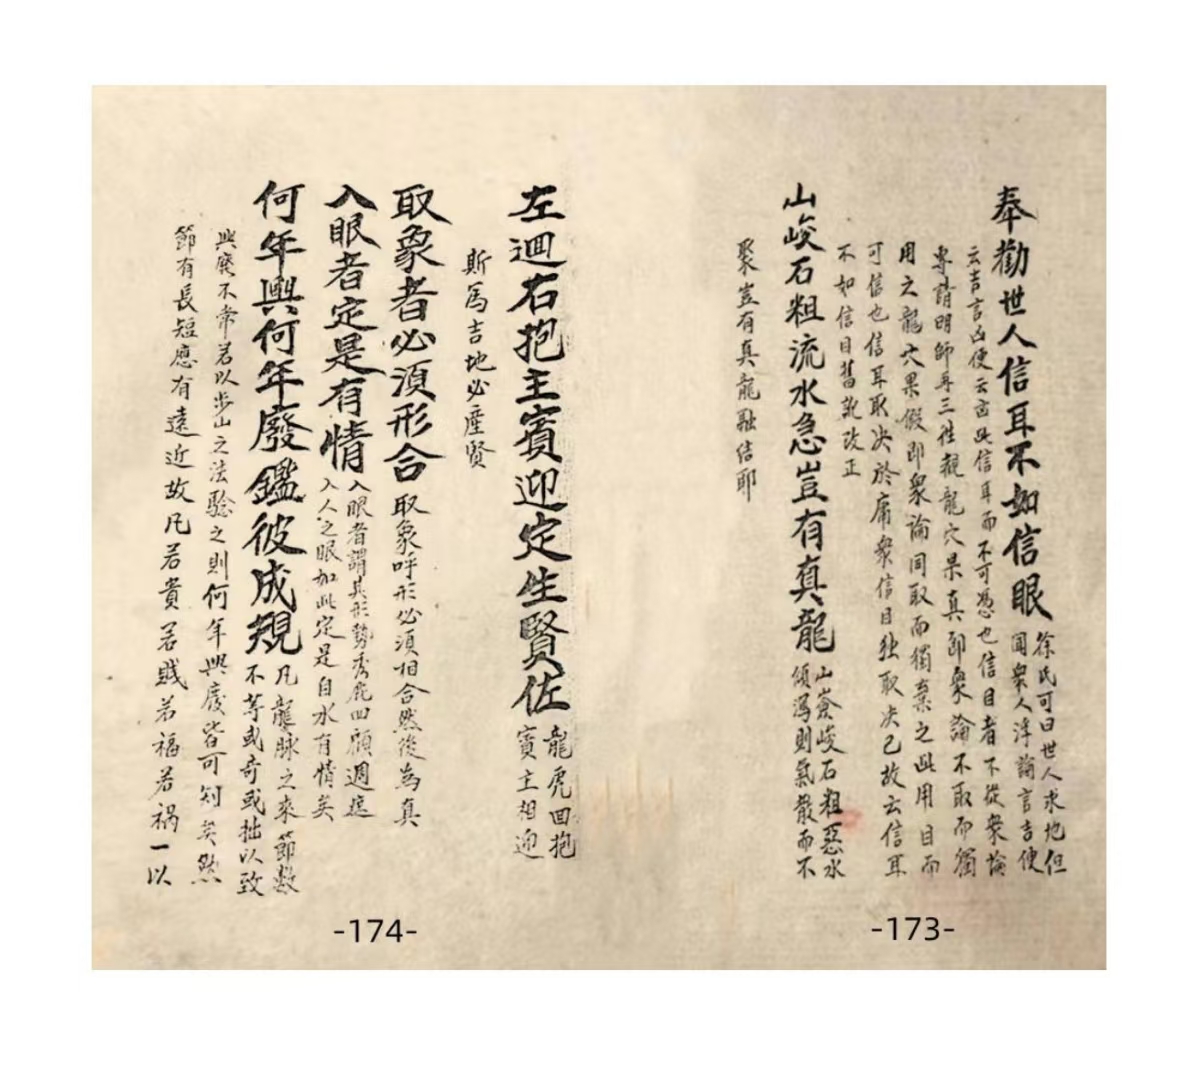 奉勸世人信耳不如信眼
徐氏可曰世人求地但
聞衆人浮論言吉便
云吉言凶便云凶此信耳而不可憑也信目者不從衆論
專請明師再三徃觀龍穴果真即衆論不取而獨
用之龍穴果假即衆論同取而獨棄之此用目而
可信也信耳取决於庸衆信目独取决己故云信耳
不如信目舊訛改正
山峻石粗流水急豈有真龍
山嶺峻石粗惡水
傾瀉則氣散而不
聚豈有真龍融结耶
-173-
左迴右抱主賓迎定生賢佐
龍虎回抱
賓主相迎
斯爲吉地必産賢
取象者必須形合取象呼形必须相合然後為真
入眼者定是有情
入眼者謂其形勢秀麗四顧週遮
入人之眼如此定是自水有情矣
何年興何年廢鑑彼成規
凡龍脉之來節数
不等或奇或拙以致
興廢不常若以步山之法驗之則何年興廢皆可知矣然
節有長短應有遠近故凡若貴若賎若福若禍一以
-174-